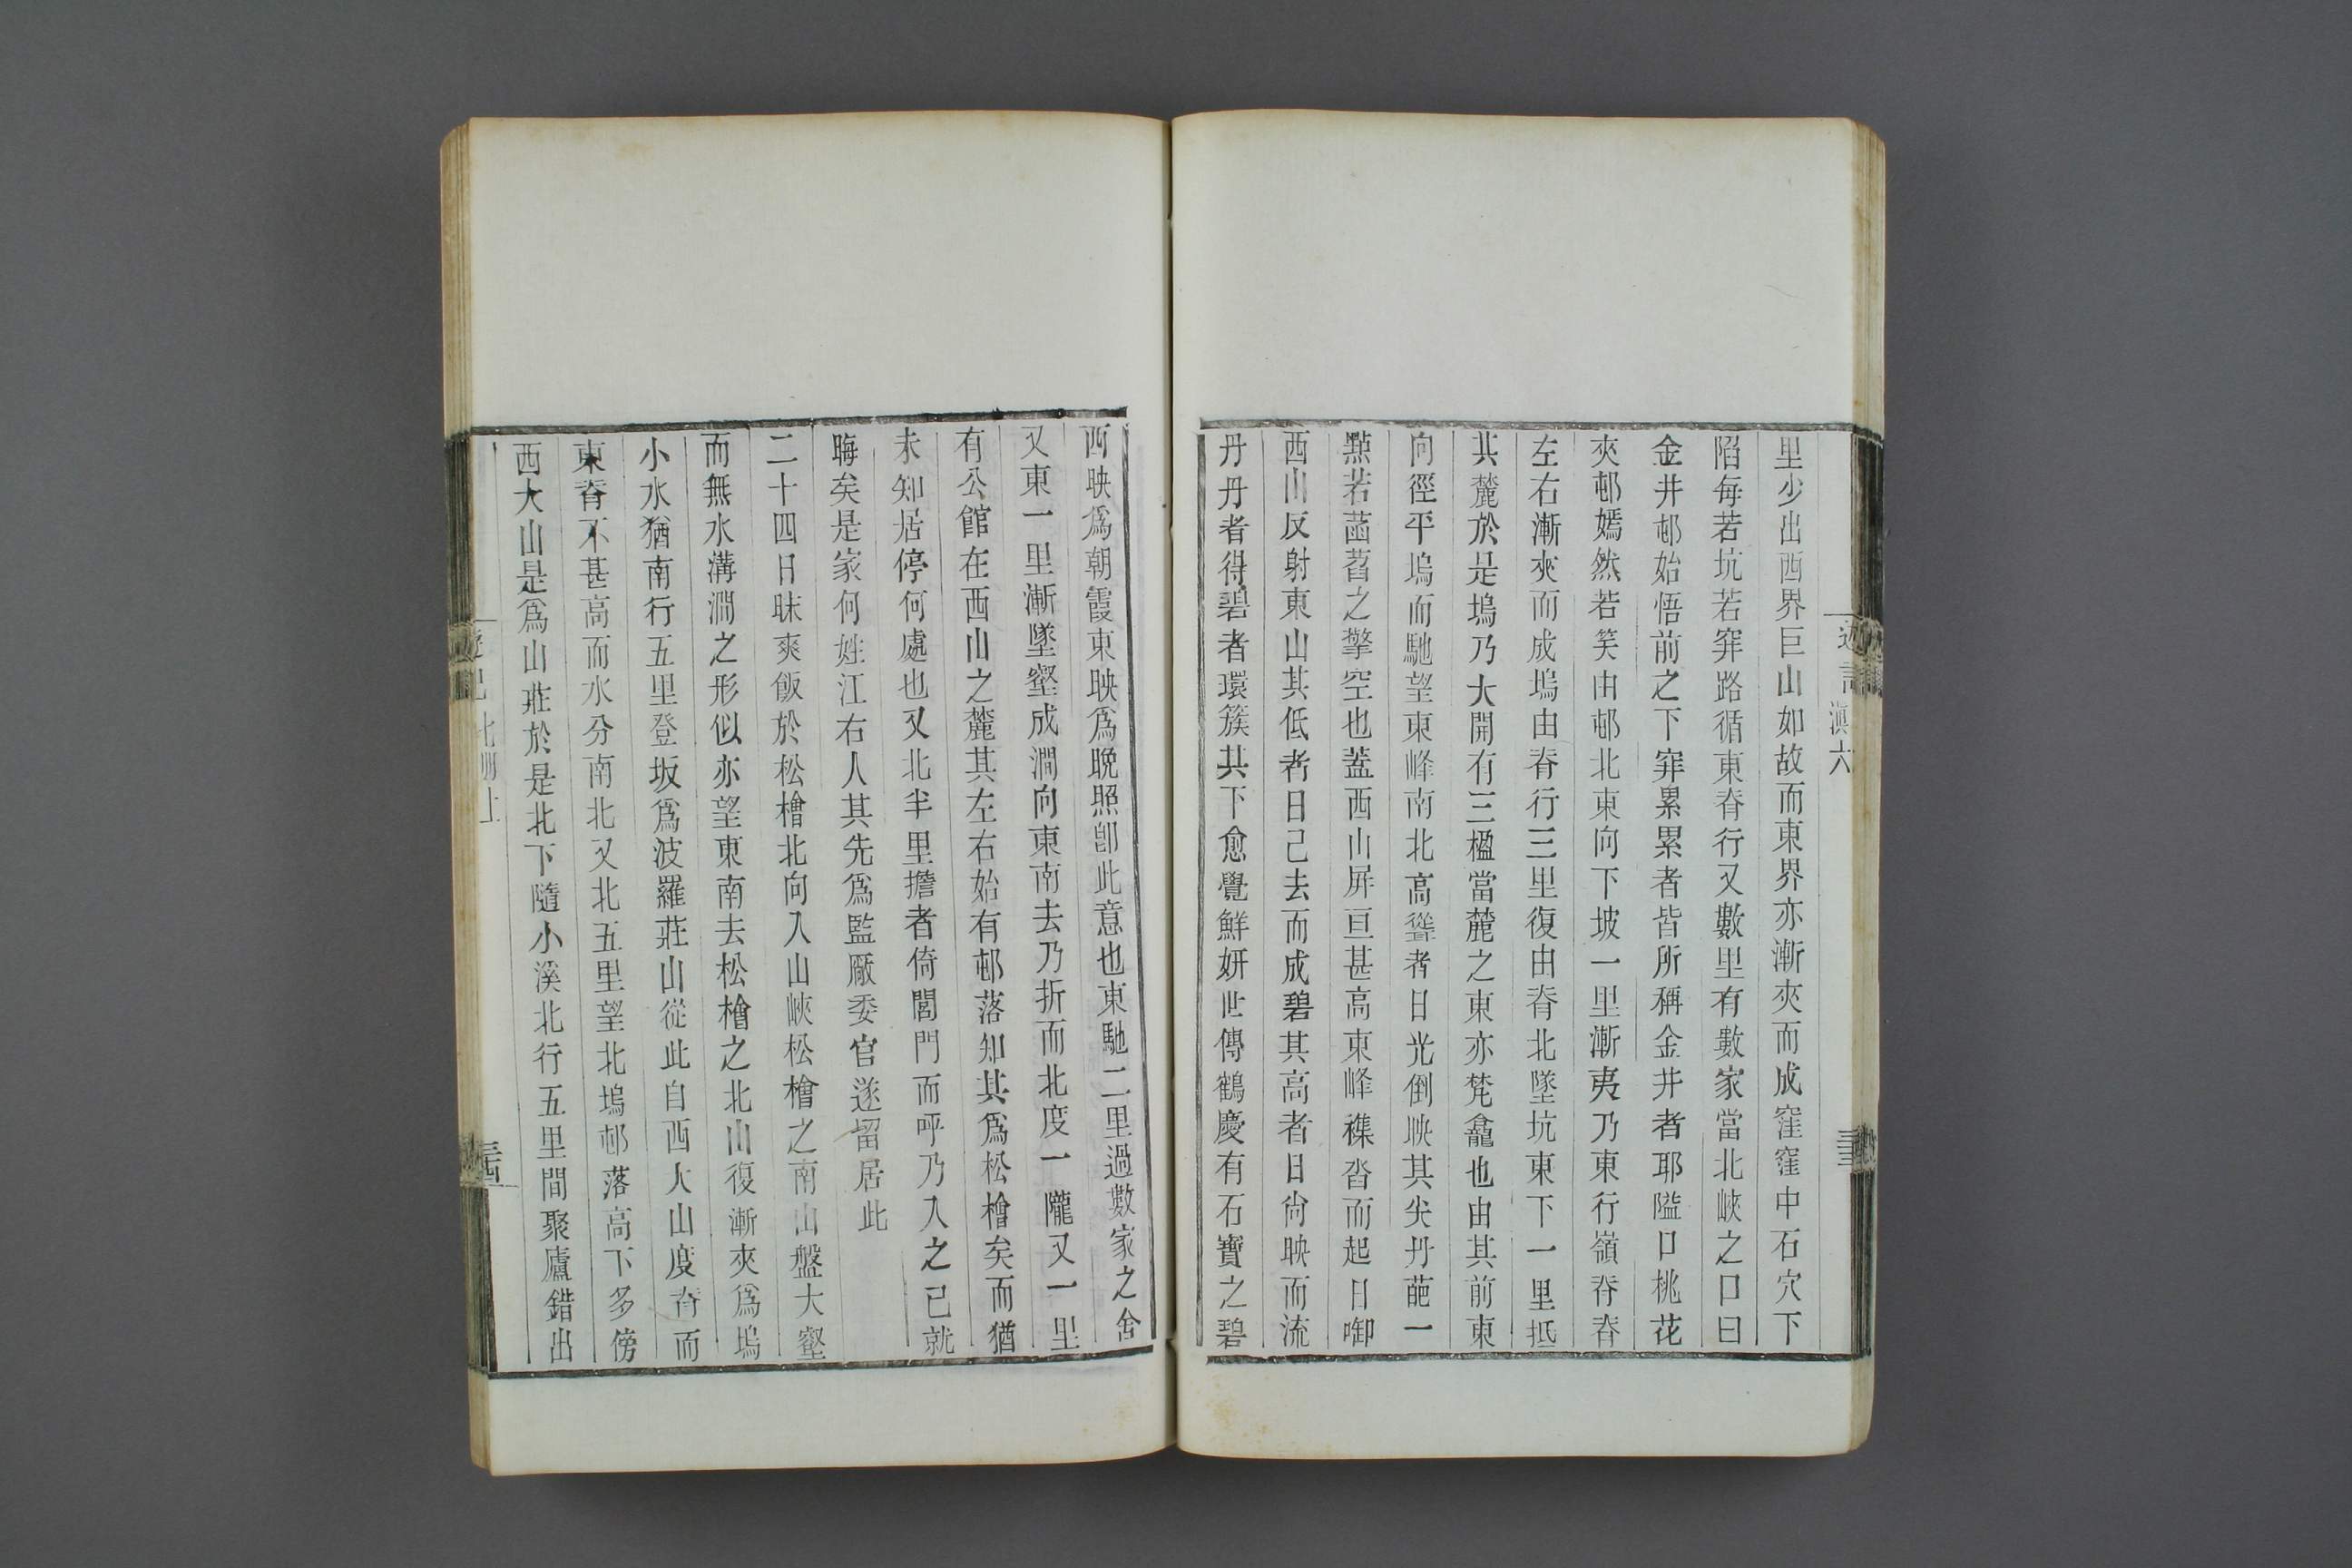 遊記 滇六
里少出西界巨山如故而東界亦漸夾而成窪窪中石穴下
陷每若坑若穽路循東脊行又數里有數家當北峽之口曰
金井邨始悟前之下穽累累者皆所稱金井者耶隘口桃花
夾邨嫣然若笑由邨北東向下坡一里漸夷乃東行嶺脊脊
左右漸夾而成塢由脊行三里復由脊北墜坑東下一里抵
其麓於是塢乃大開有三楹當麓之東亦梵龕也由其前東
向徑平塢而馳望東峰南北高聳者日光倒映其尖丹葩一
㸃若菡萏之擎空也蓋西山屏亘甚高東峰襍沓而起日啣
西山反射東山其低者日已去而成碧其高者日尙映而流
丹丹者得碧者環簇其下愈覺鮮妍世傳鶴慶有石寶之碧
西映爲朝霞東映爲晚照卽此意也東馳二里過數家之舍
又東一里漸墜壑成澗向東南去乃折而北度一隴又一里
有公館在西山之麓其左右始有邨落知其爲松檜矣而猶
未知居停何處也又北半里擔者倚閭門而呼乃入之已就
晦矣是家何姓江右人其先爲監厰委官遂留居此
二十四日昧爽飯於松檜北向入山峽松檜之南山盤大壑
而無水溝澗之形似亦望東南去松檜之北山復漸夾爲塢
小水猶南行五里登坂爲波羅莊山從此自西大山度脊而
東脊不甚高而水分南北又北五里望北塢邨落高下多傍
西大山是爲山莊於是北下隨小溪北行五里間聚廬錯出